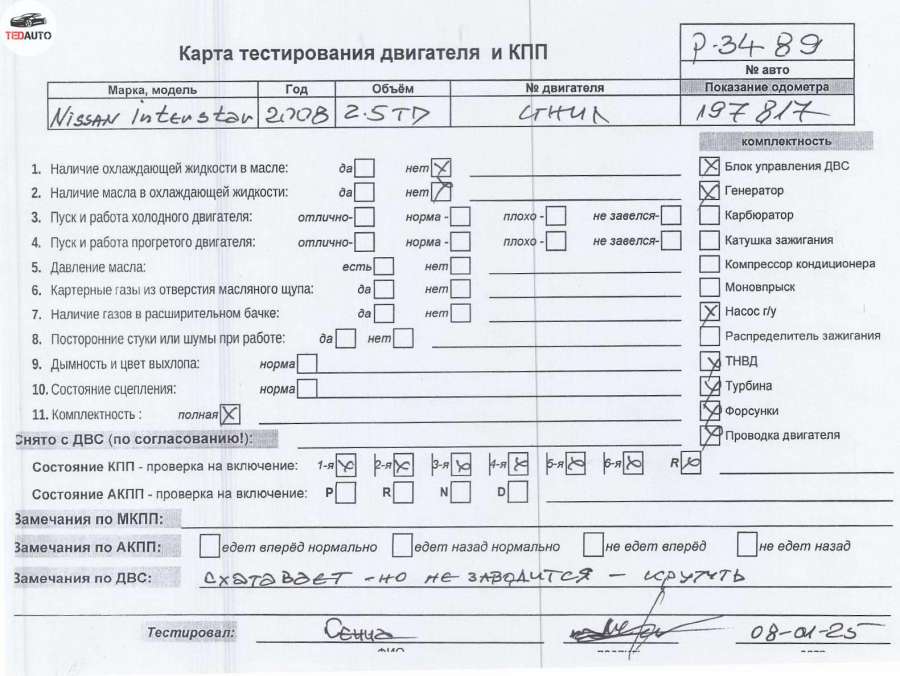 TEDAUTO
Карта тестирования двигателя и КПП
P-3489
№ авто
Марка, модель Год Объём № двигателя Показание одометра
Nissan interstar 2008 2.5TD 197 817
комплектность
1. Наличие охлаждающей жидкости в масле: да нет
Блок управления ДВС
2. Наличие масла в охлаждающей жидкости: да нет
Генератор
3. Пуск и работа холодного двигателя: отлично- норма - плохо - не завелся-
Карбюратор
4. Пуск и работа прогретого двигателя: отлично- норма - плохо - не завелся-
Катушка зажигания
5. Давление масла: есть нет
Компрессор кондиционера
6. Картерные газы из отверстия масляного щупа: да нет
Моновпрыск
7. Наличие газов в расширительном бачке: да нет
Насос г/у
8. Посторонние стуки или шумы при работе: да нет
Распределитель зажигания
9. Дымность и цвет выхлопа: норма
ТНВД
10. Состояние сцепления: норма
Турбина
11. Комплектность : полная
Форсунки
Снято с ДВС (по согласованию!):
Проводка двигателя
Состояние КПП - проверка на включение: 1-я 2-я 3-я 4-я 5-я 6-я R
Состояние АКПП - проверка на включение: P R N D
Замечания по МКПП:
Замечания по АКПП: едет вперёд нормально едет назад нормально не едет вперёд не едет назад
Замечания по ДВС: схатавает - но не заводится - крутить
Тестировал: Сенча 08-01-25